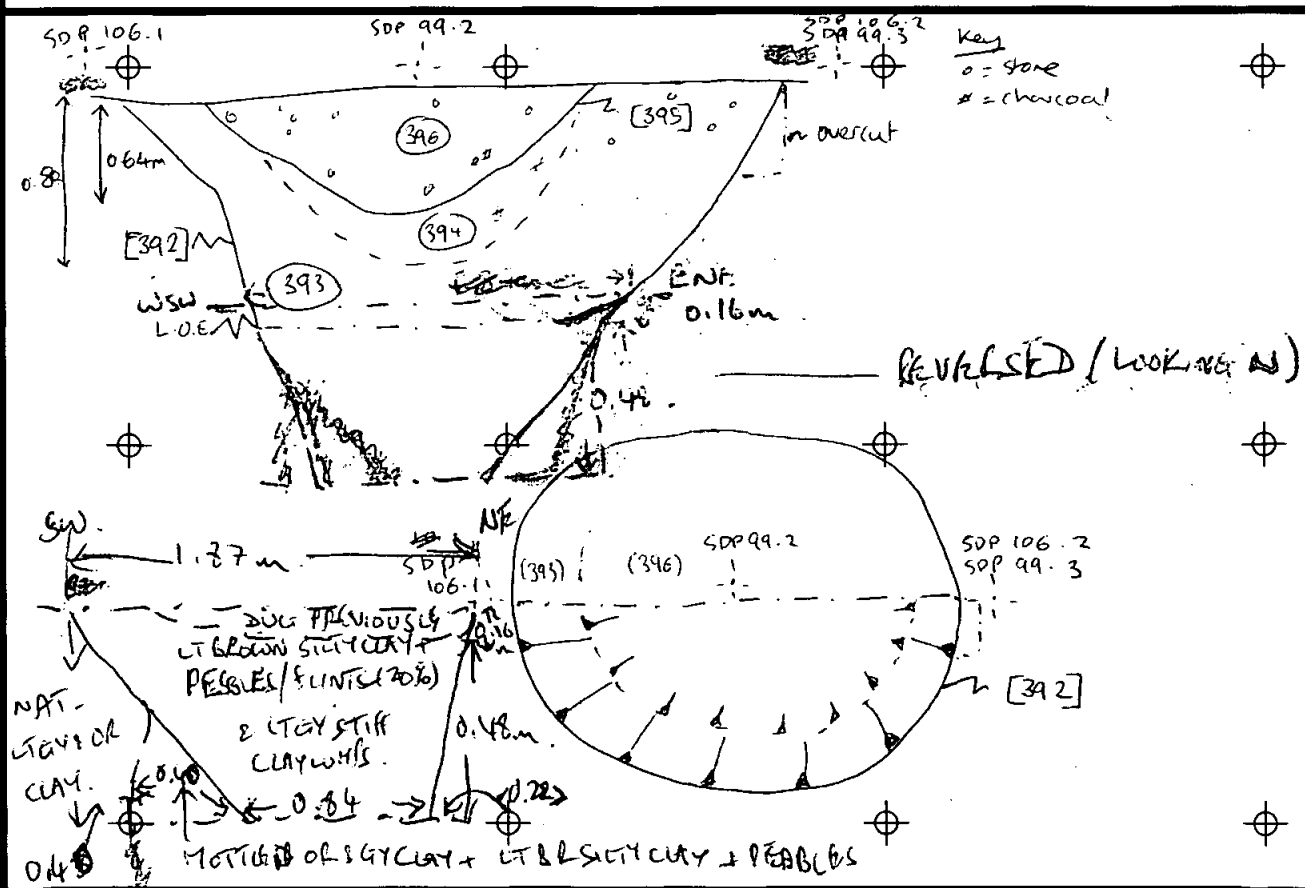 SDP 106.1
SDP 99.2
SDP 106.2
SDP 99.3
Key
o = stone
= charcoal
0.64m
[395]
(396)
overcut
(394)
[392]
(393)
WSW
L.O.E
ENE
0.16m
0.48
REVERSED (LOOKING N)
SW.
NE
1.87m
SDP
106.1
(393)
(396)
SDP 99.2
SDP 106.2
SDP 99.3
DUG PREVIOUSLY
LT BROWN SILTY CLAY +
PEBBLES/FLINTS (20%)
& LT GY STIFF
CLAY LUMPS.
0.16
0.48m.
[392]
NAT-
LT GY & OR
CLAY.
0.40
0.84
0.22
MOTTLED OR & GY CLAY + LT BR SILTY CLAY + PEBBLES